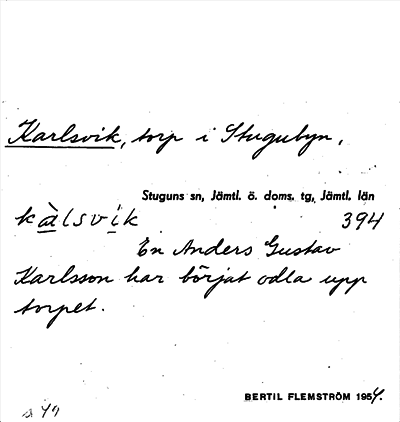 Karlsvik, torp i Stugubyn,
Stuguns sn, Jämtl. ö. doms. tg, Jämtl. län
kàlsvik 394
En Anders Gustav
Karlsson har börjat odla upp
torpet.
BERTIL FLEMSTRÖM 1954.